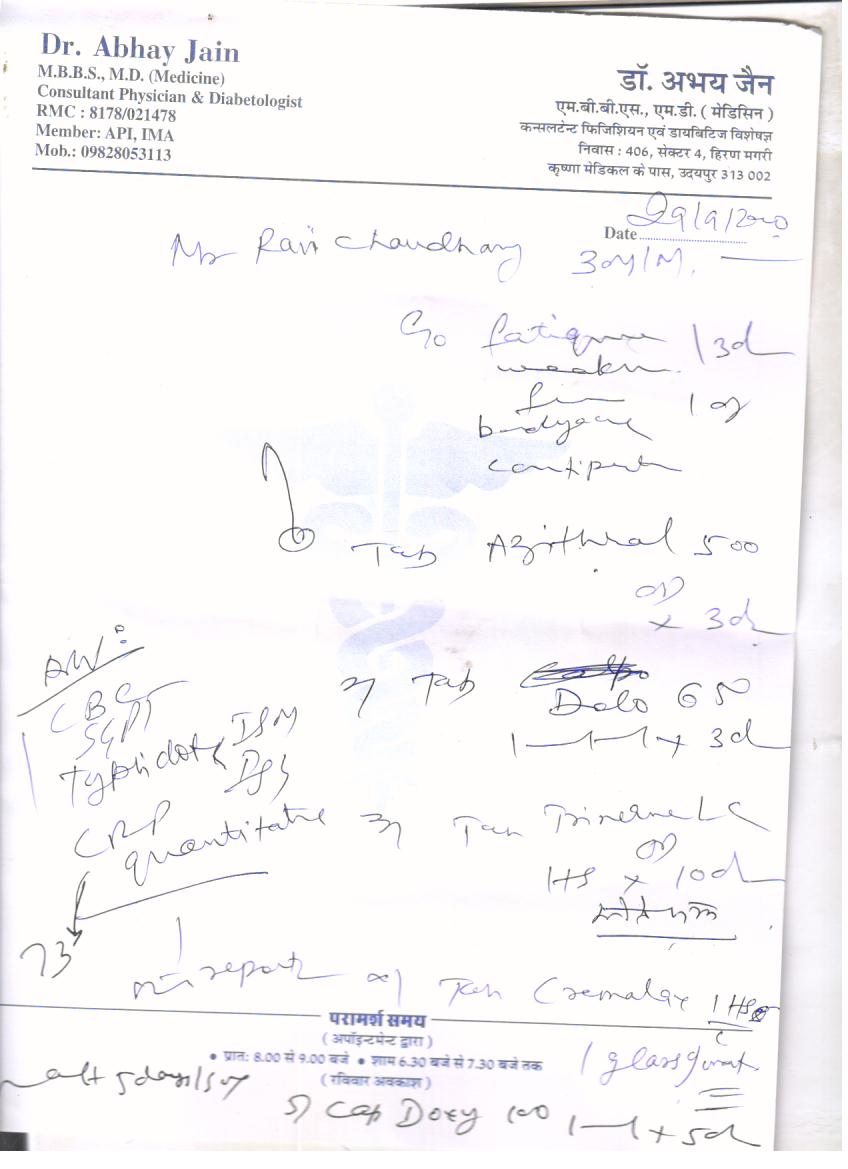 Dr. Abhay Jain
M.B.B.S., M.D. (Medicine)
Consultant Physician & Diabetologist
RMC : 8178/021478
Member: API, IMA
Mob.: 09828053113
डॉ. अभय जैन
एम.बी.बी.एस., एम.डी. ( मेडिसिन )
कन्सलटेन्ट फिजिशियन एवं डायबिटिज विशेषज्ञ
निवास : 406, सेक्टर 4, हिरण मगरी
कृष्णा मेडिकल के पास, उदयपुर 313 002
Date
Mr Ravi Chaudhary 30y/M.
C/o fatigue / 3d
bodyache
Tab Azithral 500
OD
x 3d
Adv:
CBC
SGPT
Typhidot IgM
IgG
CRP
quantitative
Tab Dolo 650
1-1-1 x 3d
3) Tab LC
OD
1 HS x 10d
report
4) Tab Cremalax 1 HS
1 glass
परामर्श समय
( अपॉइन्टमेन्ट द्वारा )
• प्रातः 8.00 से 9.00 बजे • शाम 6.30 बजे से 7.30 बजे तक
( रविवार अवकाश )
5) Cap Doxy 100 1-1 x 5d